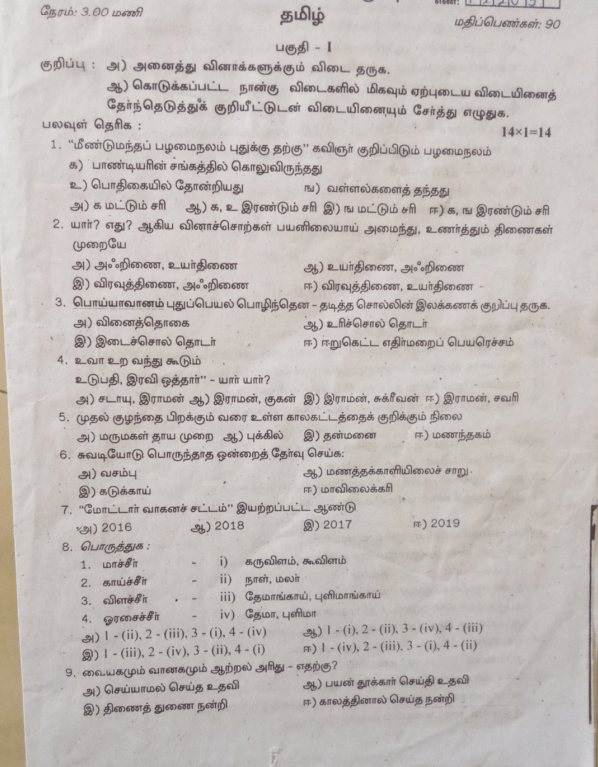 நேரம்: 3.00 மணி
தமிழ்
மதிப்பெண்கள்: 90
பகுதி - I
குறிப்பு : அ) அனைத்து வினாக்களுக்கும் விடை தருக.
ஆ) கொடுக்கப்பட்ட நான்கு விடைகளில் மிகவும் ஏற்புடைய விடையினைத்
தேர்ந்தெடுத்துக் குறியீட்டுடன் விடையினையும் சேர்த்து எழுதுக.
பலவுள் தெரிக :
14×1=14
1. "மீண்டுமந்தப் பழமைநலம் புதுக்கு தற்கு" கவிஞர் குறிப்பிடும் பழமைநலம்
க) பாண்டியரின் சங்கத்தில் கொலுவிருந்தது
உ) பொதிகையில் தோன்றியது ங) வள்ளல்களைத் தந்தது
அ) க மட்டும் சரி ஆ) க, உ இரண்டும் சரி இ) ங மட்டும் சரி ஈ) க, ங இரண்டும் சரி
2. யார்? எது? ஆகிய வினாச்சொற்கள் பயனிலையாய் அமைந்து, உணர்த்தும் திணைகள்
முறையே
அ) அஃறிணை, உயர்திணை ஆ) உயர்திணை, அஃறிணை
இ) விரவுத்திணை, அஃறிணை ஈ) விரவுத்திணை, உயர்திணை
3. பொய்யாவானம் புதுப்பெயல் பொழிந்தென - தடித்த சொல்லின் இலக்கணக் குறிப்பு தருக.
அ) வினைத்தொகை ஆ) உரிச்சொல் தொடர்
இ) இடைச்சொல் தொடர் ஈ) ஈறுகெட்ட எதிர்மறைப் பெயரெச்சம்
4. உவா உற வந்து கூடும்
உடுபதி, இரவி ஒத்தார்" - யார் யார்?
அ) சடாயு, இராமன் ஆ) இராமன், குகன் இ) இராமன், சுக்ரீவன் ஈ) இராமன், சவரி
5. முதல் குழந்தை பிறக்கும் வரை உள்ள காலகட்டத்தைக் குறிக்கும் நிலை
அ) மருமகள் தாய முறை ஆ) புக்கில் இ) தன்மனை ஈ) மணந்தகம்
6. சுவடியோடு பொருந்தாத ஒன்றைத் தேர்வு செய்க:
அ) வசம்பு ஆ) மணத்தக்காளியிலைச் சாறு
இ) கடுக்காய் ஈ) மாவிலைக்கரி
7. "மோட்டார் வாகனச் சட்டம்" இயற்றப்பட்ட ஆண்டு
அ) 2016 ஆ) 2018 இ) 2017 ஈ) 2019
8. பொருத்துக :
1. மாச்சீர் - i) கருவிளம், கூவிளம்
2. காய்ச்சீர் - ii) நாள், மலர்
3. விளச்சீர் - iii) தேமாங்காய், புளிமாங்காய்
4. ஓரசைச்சீர் - iv) தேமா, புளிமா
அ) 1 - (ii), 2 - (iii), 3 - (i), 4 - (iv) ஆ) 1 - (i), 2 - (ii), 3 - (iv), 4 - (iii)
இ) 1 - (iii), 2 - (iv), 3 - (ii), 4 - (i) ஈ) 1 - (iv), 2 - (iii), 3 - (i), 4 - (ii)
9. வையகமும் வானகமும் ஆற்றல் அரிது - எதற்கு?
அ) செய்யாமல் செய்த உதவி ஆ) பயன் தூக்கார் செய்தி உதவி
இ) தினைத் துணை நன்றி ஈ) காலத்தினால் செய்த நன்றி